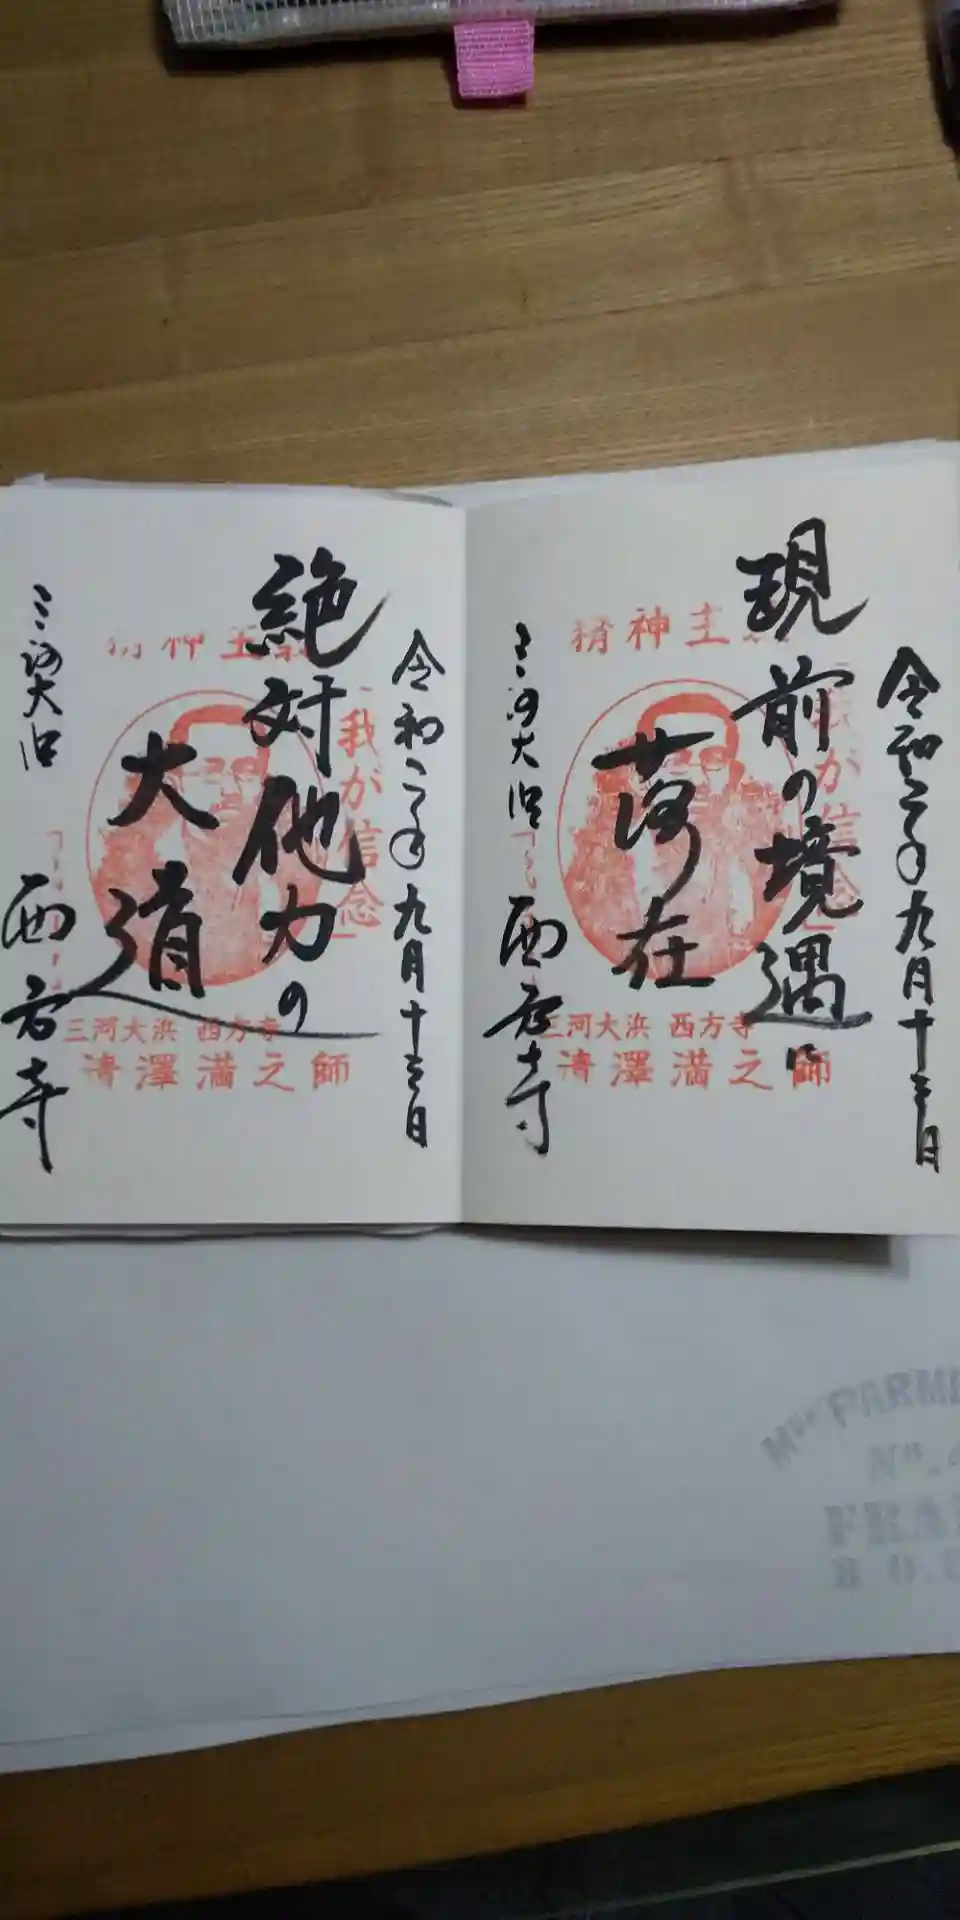 令和二年九月十三日
現前の境遇に
落在
三河大浜 西方寺
精神主義
我が信念
三河大浜 西方寺
清澤満之師
令和二年九月十三日
絶対他力の
大道
三河大浜 西方寺
精神主義
「我が信念」
三河大浜 西方寺
清澤満之師